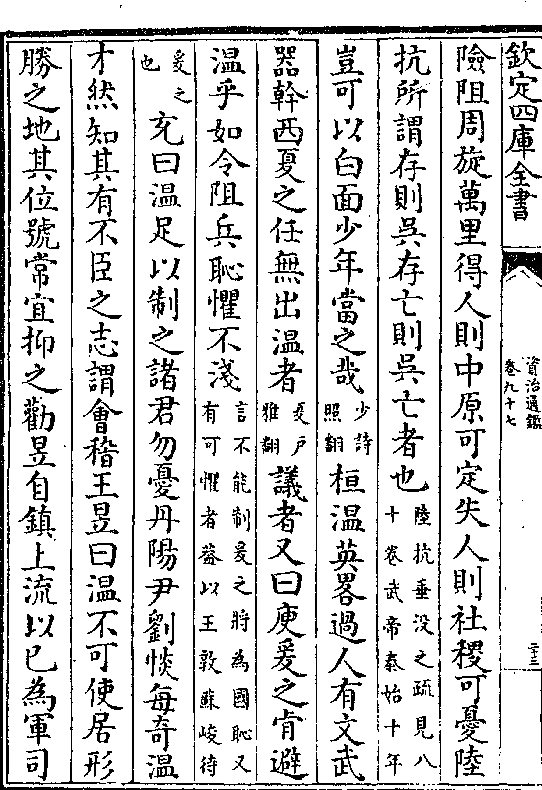 欽定四庫全書
資治通鑑
卷九十七
二十三
險阻周旋萬里得人則中原可定失人則社稷可憂陸
抗所謂存則吳存亡則吳亡者也陸抗垂没之疏見八十卷武帝泰始十年
豈可以白面少年當之哉少詩照翻桓温英畧過人有文武
器幹西夏之任無出温者夏户雅翻議者又曰庾爰之肯避
温乎如令阻兵恥懼不淺言不能制爰之將為國恥又有可懼者葢以王敦蘇峻待
爰之也充曰温足以制之諸君勿憂丹陽尹劉惔每奇温
才然知其有不臣之志謂會稽王昱曰温不可使居形
勝之地其位號常宜抑之勸昱自鎮上流以已為軍司